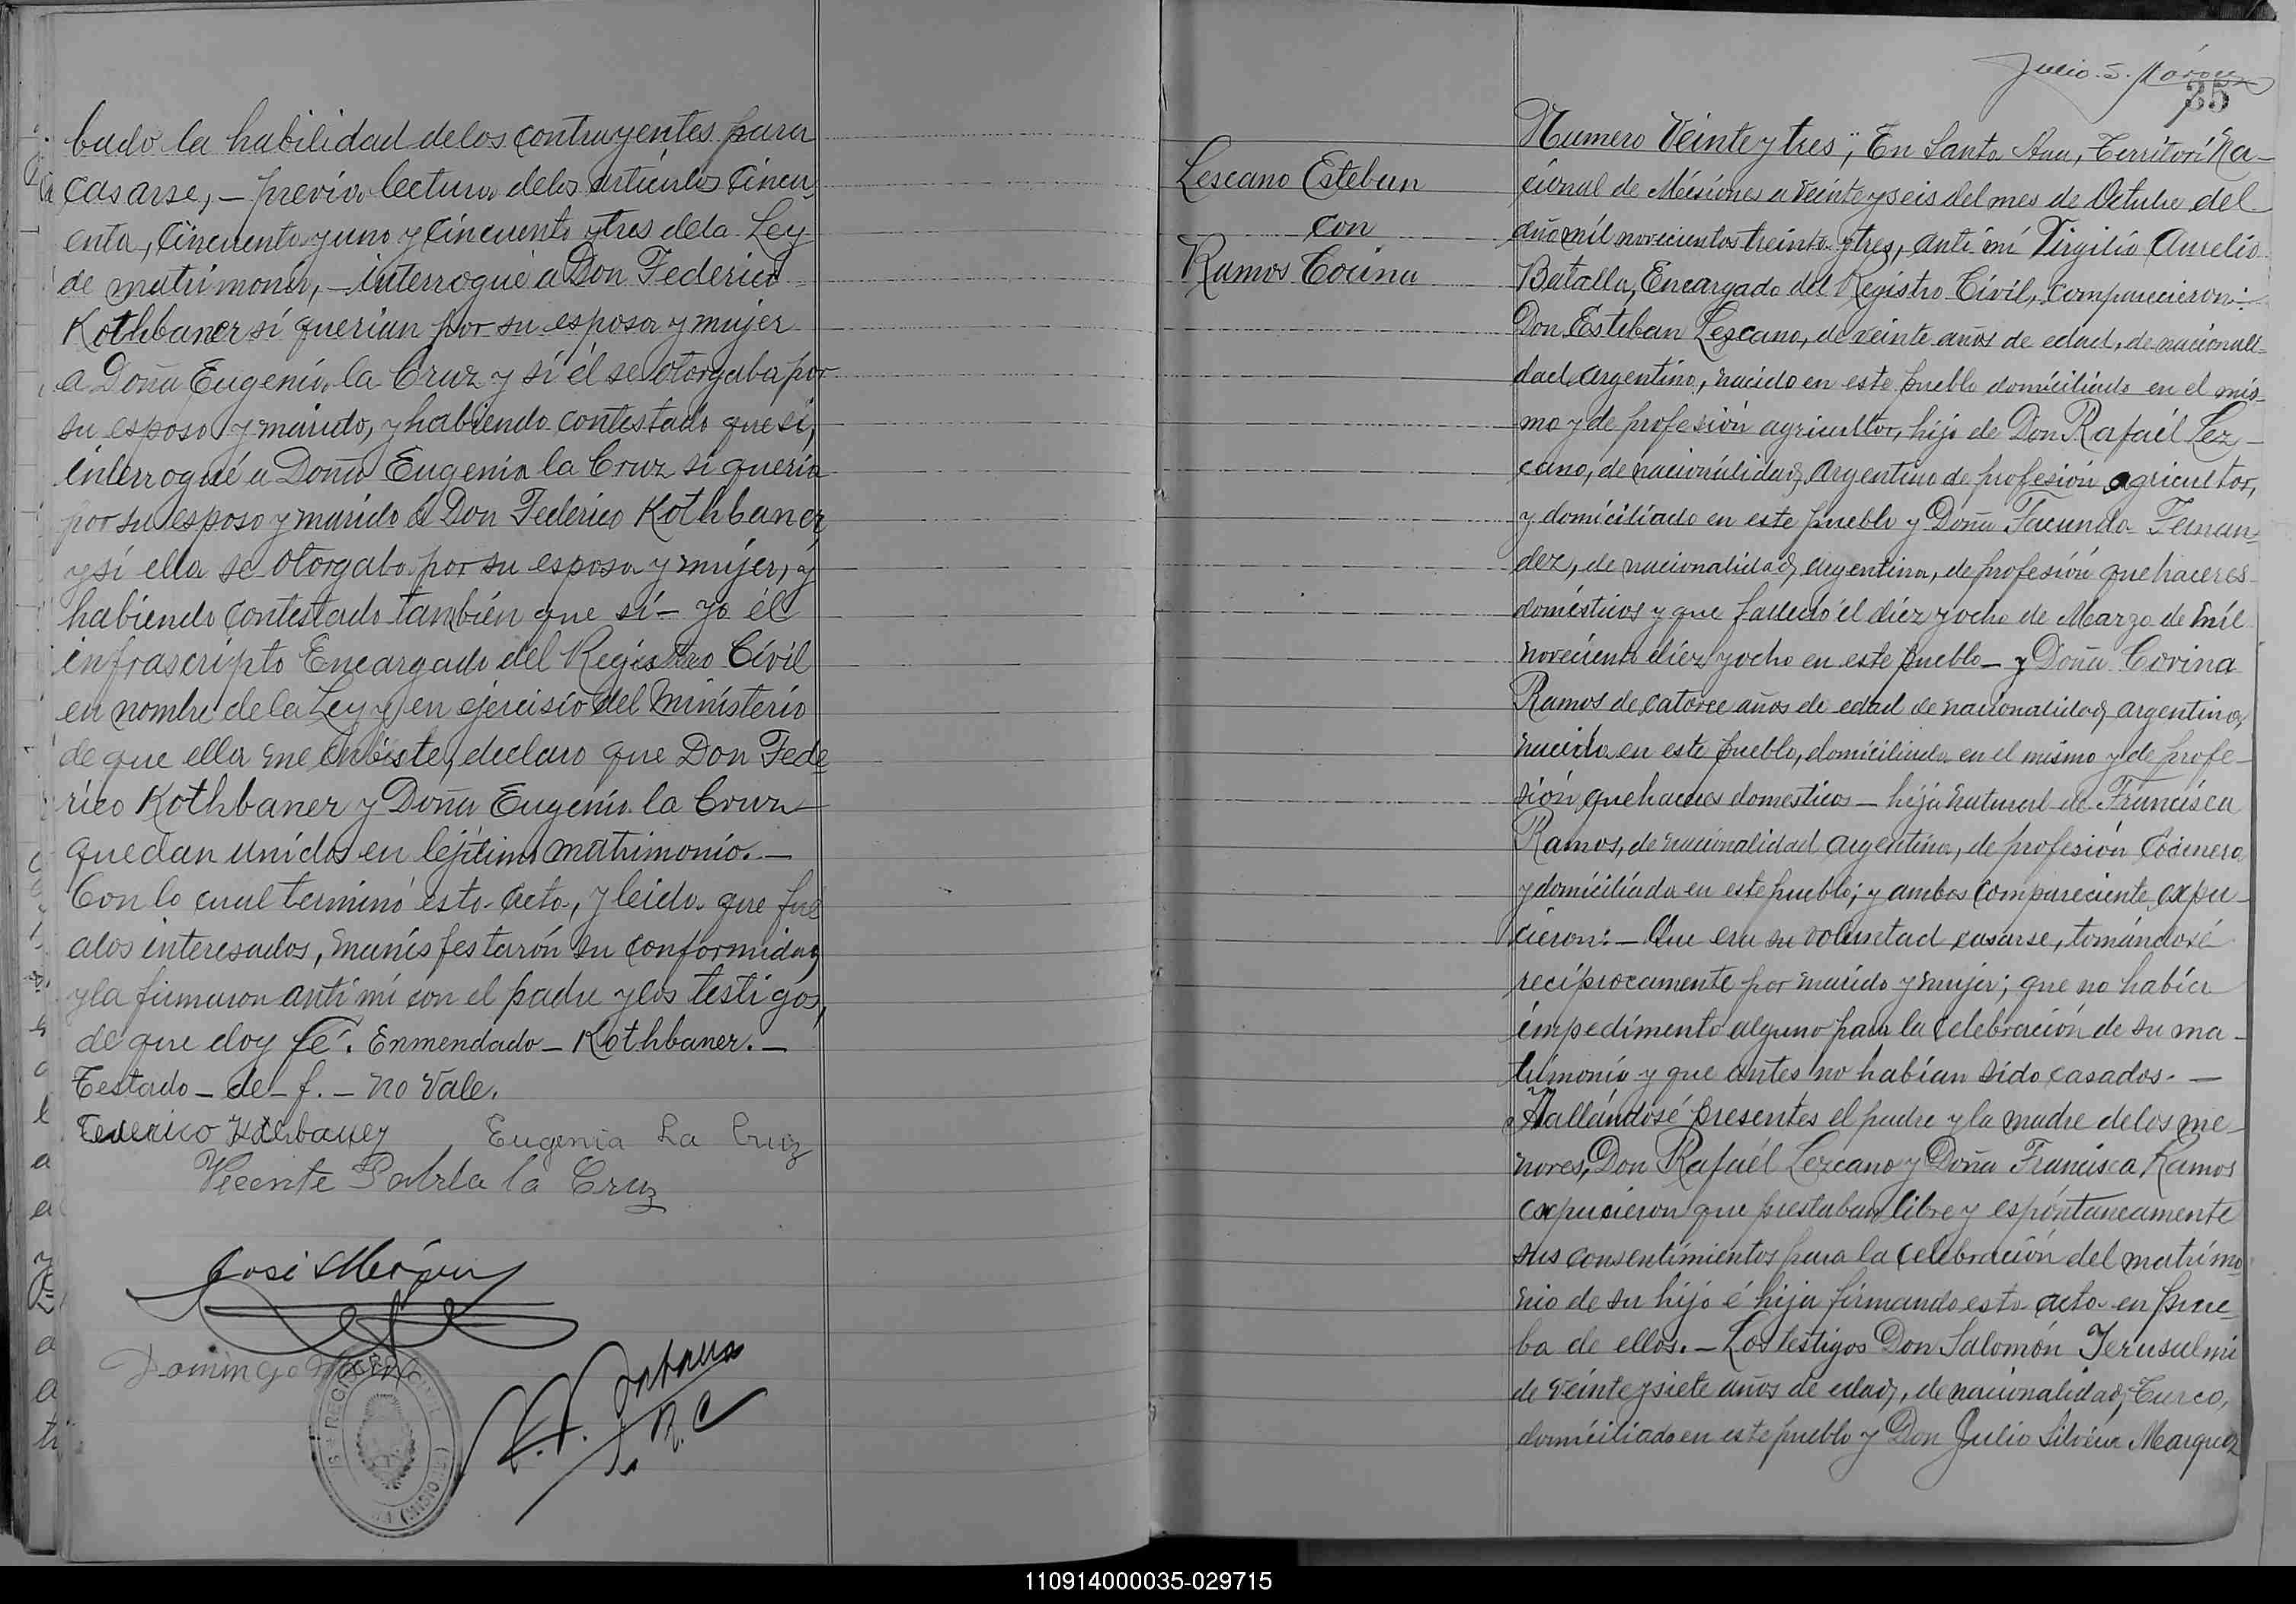 bado la habilidad delos contrayentes para
casarse, — previa lectura delos artículos Cincu
enta, Cincuenta y uno y Cincuenta y tres dela Ley
de matrimonio, — interrogué a Don Federico
Kothbaner sí querian por su esposa y mujer
a Doña Eugenia la Cruz y sí él se otorgaba por
su esposo y marido, y habiendo contestado que sí,
interrogué a Doña Eugenia la Cruz si quería
por su esposo y marido á Don Federico Kothbaner
y sí ella se otorgaba por su esposa y mujer, y
habiendo contestado también que sí — yo él
infrascripto Encargado del Registro Civil
en nombre de la Ley y en ejercisio del Ministerio
de que ella me enbiste, declaro que Don Fede
rico Kothbaner y Doña Eugenia la Cruz
quedan unidos en lejítimo matrimonio. —
Con lo cual terminó esta acta, y leida que fué
alos interesados, manisfestarón su conformidad
y la firmaron antí mí con el padre y los testigos,
de que doy fé. Enmendado — Kothbaner. —
Testado — de — f. — no vale.
Federico Kothbauer Eugenia La Cruz
Vicente la Cruz
José
Domingo
REGISTRO CIVIL
Julio S.
35
Lescano Esteban
con
Ramos Corina
Numero Veinte y tres", En Santa Ana, Territori Na-
cional de Misiones a veinte y seis del mes de Octubre del
año mil novecientos treinta y tres, anti mí Virgilio Aurelio
Batalla, Encargado del Registro Civil, comparecieron:
Don Esteban Lezcano, de veinte años de edad, de nacionali-
dad argentino, nacido en este pueblo domiciliado en el mis-
mo y de profesión agricultor, hijo de Don Rafaél Lez-
cano, de nacionalidad argentino de profesión agricultor,
y domiciliado en este pueblo y Doña Facunda Fernan-
dez, de nacionalidad argentina, de profesión quehaceres
domésticos y que falleció el diéz y ocho de Marzo de mil
noveciento diéz y ocho en este pueblo — y Doña Corina
Ramos de catorce años de edad de nacionalidad argentina,
nacida en este pueblo, domiciliada en el mismo y de profe-
sión quehaceres domesticos — hija natural de Francisca
Ramos, de nacionalidad argentina, de profesión Cocinera
y domiciliada en este pueblo; y ambos compareciente expu-
cieron: — Que era su voluntad casarse, tomándosé
recíprocamente por marido y mujer; que no había
impedimento alguno para la celebración de su ma-
trimonio y que antes no habían sido casados. —
Hallándosé presentes el padre y la madre delos me-
nores, Don Rafaél Lezcano y Doña Francisca Ramos
expucieron que prestaban libre y espóntaneamente
sus consentimientos para la celebración del matrimo
nio de su hijo é hija firmando esta acta en prue-
ba de ellos. — Los testigos Don Salomón Jerusalmi
de veinte y siete años de edad, de nacionalidad Turco,
domiciliado en este pueblo y Don Julio Silveira Marquez
110914000035-029715